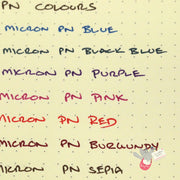 PN COLOURS
MICRON PN BLUE
MICRON PN BLACK BLUE
MICRON PN PURPLE
MICRON PN PINK
MICRON PN RED
MICRON PN BURGUNDY
MICRON PN SEPIA